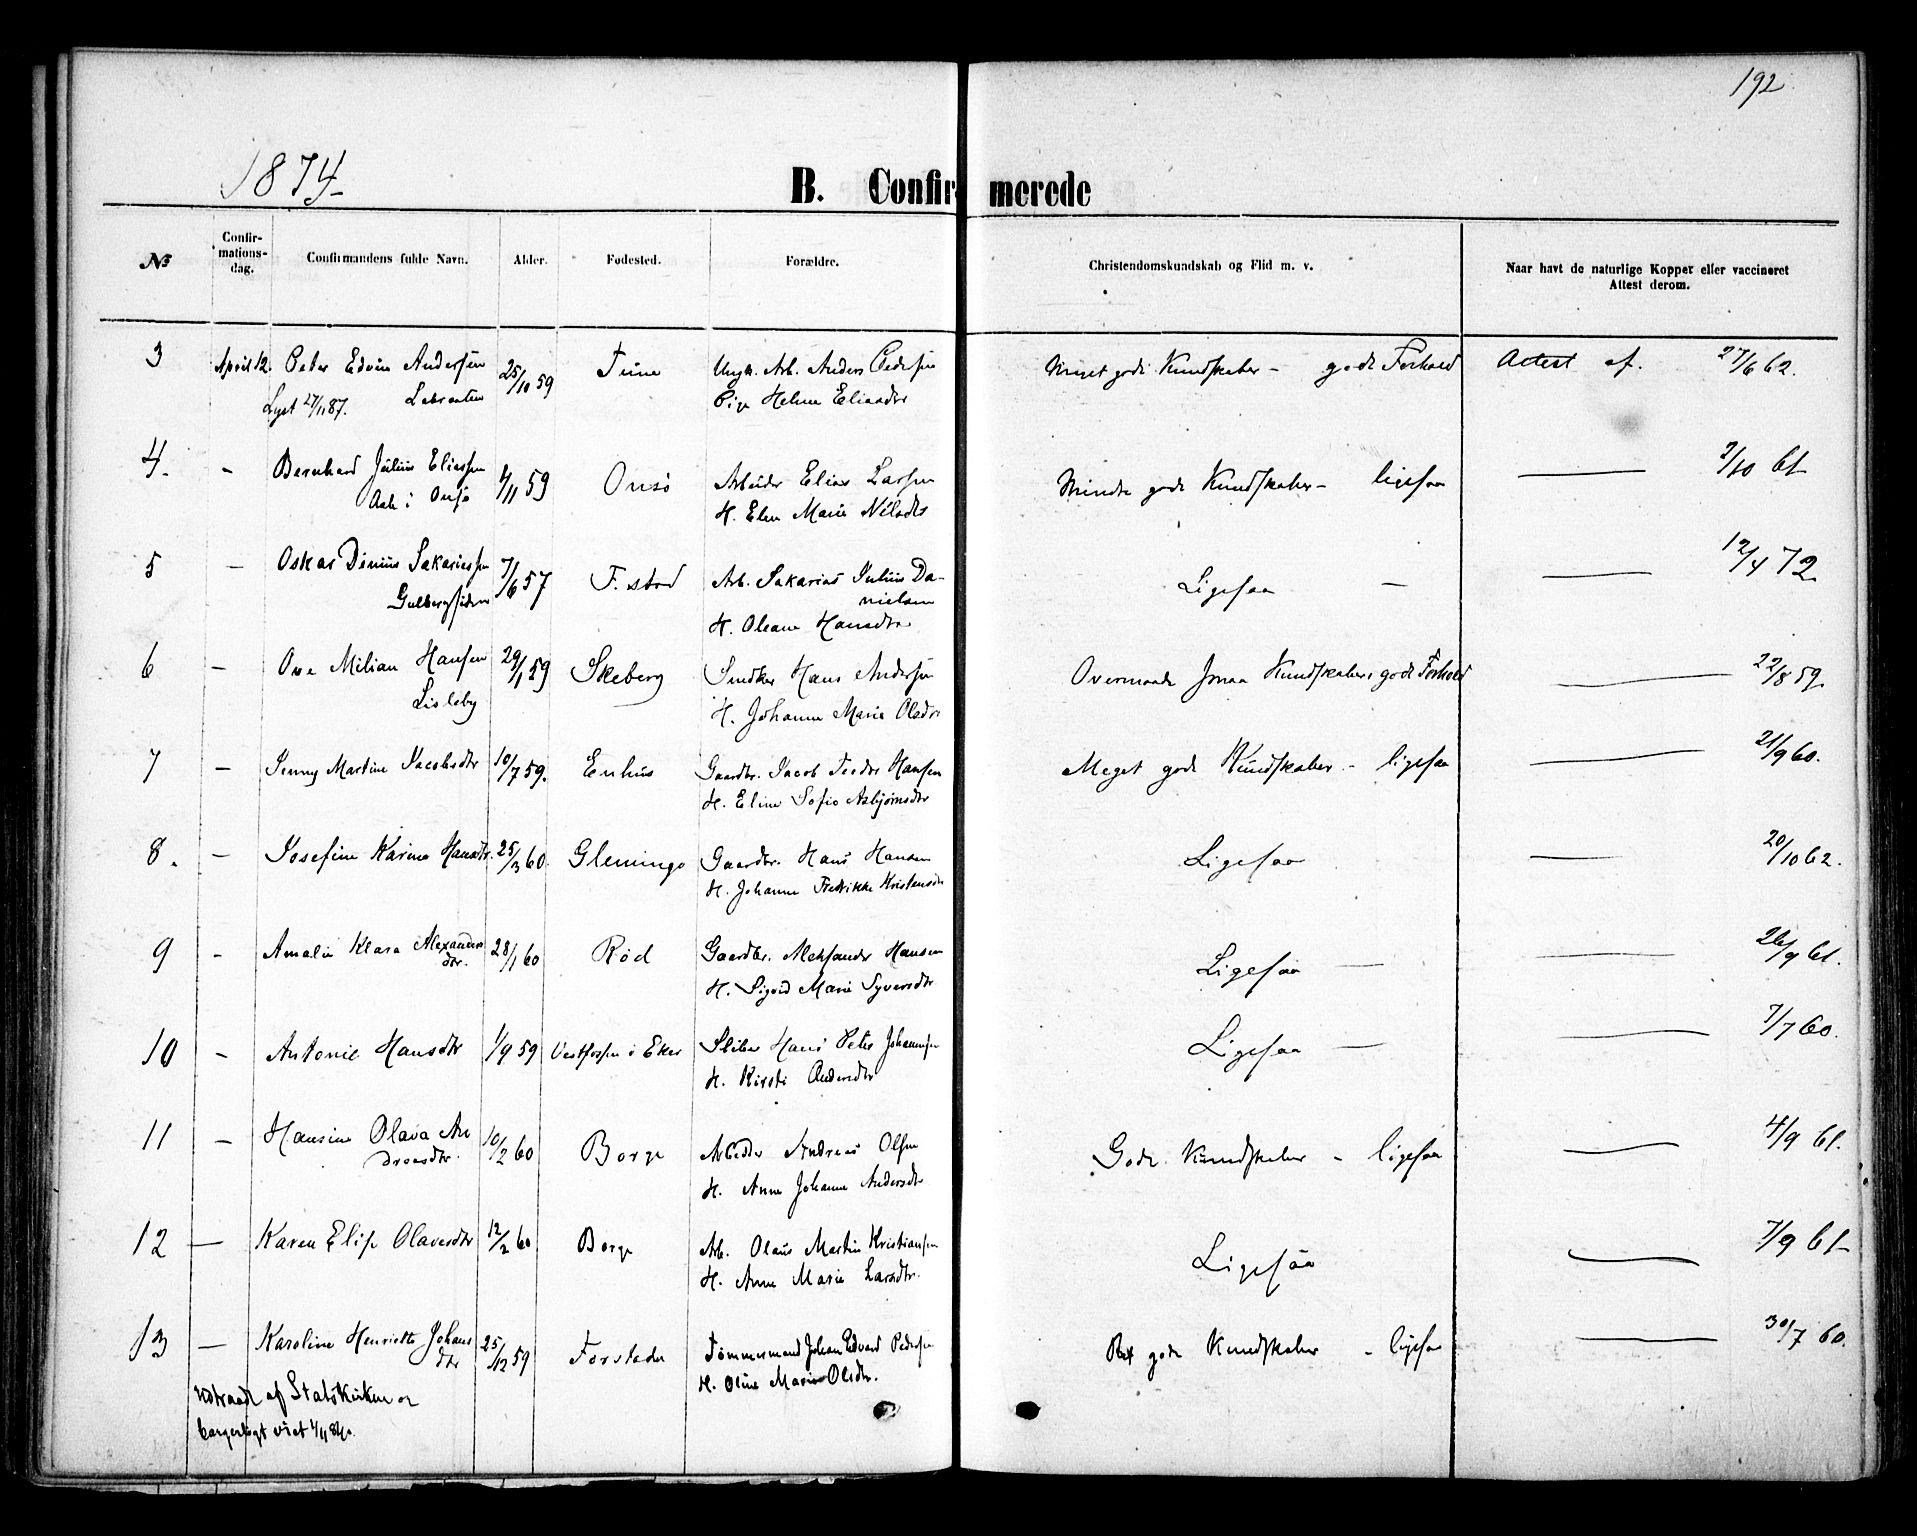 192
1874
B. Confirmerede
№
Confir-
mations-
dag.
Confirmandens fulde Navn.
Alder.
Fødested.
Forældre.
Christendomskundskab og Flid m. v.
Naar havt de naturlige Kopper eller vaccineret
Attest derom.
3 April 12. Peter Edvin Andersen 25/10 59 Tune Ungk. Arb. Anders Pedersen godt Forhold Attest af. 27/6 62.
Lyst 27/11 87. Pige Helene Eliasdtr
4. - Bernhard Julius Eliassen /11 59 Onsø Arbeider Elias Larsen Mindre gode Kundskaber - ligesaa — /10 61
i Onsø H. Elen Marie Nilsdtr
5 — Oskar Sakariassen 7/6 57 F. stad Arb. Sakarias Julius Da-
nielsen Ligesaa — — 12/4 72.
Gulbergsiden H. Oleane Hansdtr
6 — Ove Milian Hansen 29/1 59 Skeberg Snedker Hans Andersen Overmaade Kundskaber godt Forhold — 22/8 59.
Lisleby H. Johanne Marie Olsdtr
7 — Jenny Martine Jacobsdtr 10/7 59. Enhus Gaardbr. Jacob Hansen Meget gode Kundskaber - ligesaa — 21/9 60.
H. Eline Sofie Asbjørnsdtr
8. — Josefine Karine Hansdtr. 25/3 60. Glemminge Gaardbr. Hans Hansen Ligesaa — 20/10 62.
H. Johanne Fredrikke Kristensdtr
9 - Amalie Klara Alexanders
dtr. 28/1 60 Rød Gaardbr. Aleksander Hansen Ligesaa — — 26/9 61.
H. Sigrid Marie Syversdtr
10 - Antonie Hansdtr 1/9 59 Vestfossen i Eker Sliber Hans Peter Johannesen Ligesaa — — 7/7 60.
H. Kirsti Andersdtr
11 — Hansine Olava An
dreasdtr. 10/2 60 Borge Arbeider Andreas Olsen Gode Kundskaber - ligesaa — 4/9 61.
H. Anne Johanne Andersdtr
12 — Karen Elise Olavesdtr 12/2 60 Borge Arb. Olaus Martin Kristiansen Ligesaa — 7/9 61
H. Anne Marie Larsdtr.
13 — Karoline Henriette Johans
dtr 25/12 59 Forstaden Tømmermand Johan Edvard Pedersen gode Kundskaber - ligesaa — 30/7 60.
H. Oline Marie Olsdtr.
Udtraadt af Statskirken og
borgerligt viet